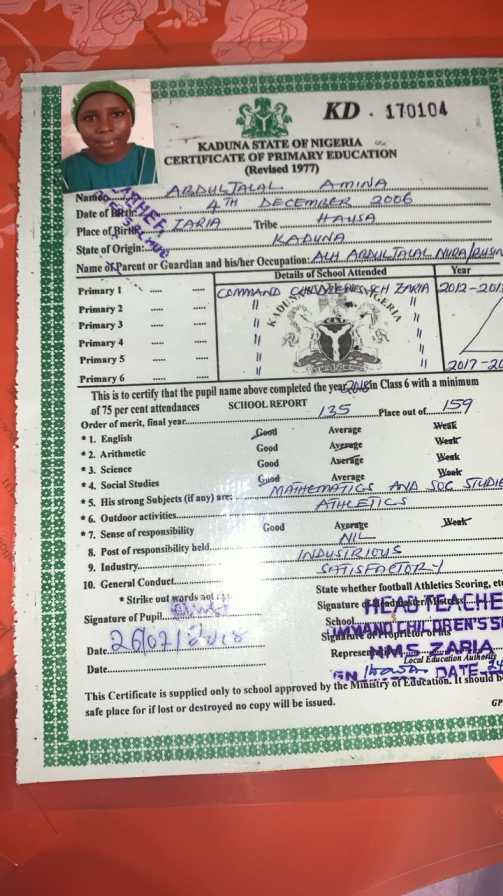 KD . 170104
KADUNA STATE OF NIGERIA
CERTIFICATE OF PRIMARY EDUCATION
(Revised 1977)
Name ABDULJALAL AMINA
Date of Birth: 4TH DECEMBER 2006
Place of Birth ZARIA Tribe HAUSA
State of Origin: KADUNA
Name of Parent or Guardian and his/her Occupation: ALH ABDULJALAL NURA/
Details of School Attended Year
Primary 1 .... ..... COMMAND SCH ZARIA 2012-201
Primary 2 .... ..... " "
Primary 3 .... ..... " "
Primary 4 .... ..... " "
Primary 5 .... ..... " "
Primary 6 .... ..... " " 2017-20
KADUNA NIGERIA
This is to certify that the pupil name above completed the year 2018 in Class 6 with a minimum
of 75 per cent attendances SCHOOL REPORT
Order of merit, final year 135 Place out of 159
* 1. English Good Average Weak
* 2. Arithmetic Good Average Weak
* 3. Science Good Average Weak
* 4. Social Studies Good Average Weak
* 5. His strong Subjects (if any) are: MATHEMATICS AND SOC STUDIE
* 6. Outdoor activities ATHLETICS
* 7. Sense of responsibility Good Average Weak
8. Post of responsibility held NIL
9. Industry INDUSTRIOUS
10. General Conduct SATISFACTORY
* Strike out words not State whether football Athletics Scoring, etc
Signature of Pupil Signature of Headmaster/Mistress
HEADTEACHE
School
CHILDREN'S S
Signature of Proprietor or his
Date 26/07/2018 Representative
NMS ZARIA
Local Education Authority
Date SIGN DATE 24
This Certificate is supplied only to school approved by the Ministry of Education. It should b
safe place for if lost or destroyed no copy will be issued.
GP